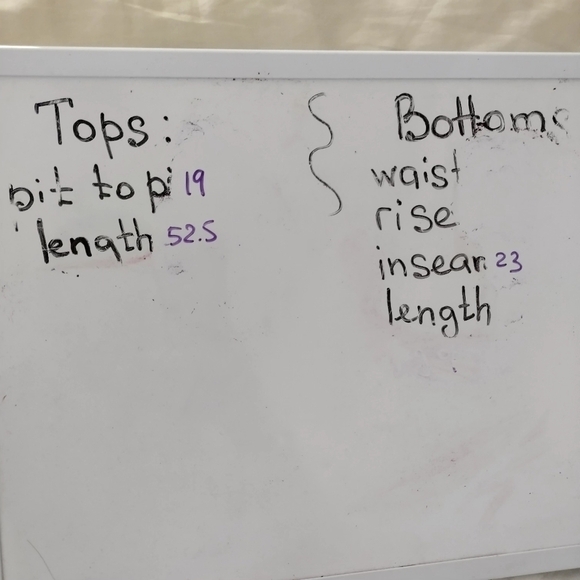 Tops:
pit to pi 19
length 52.5
Bottoms
waist
rise
inseam 23
length